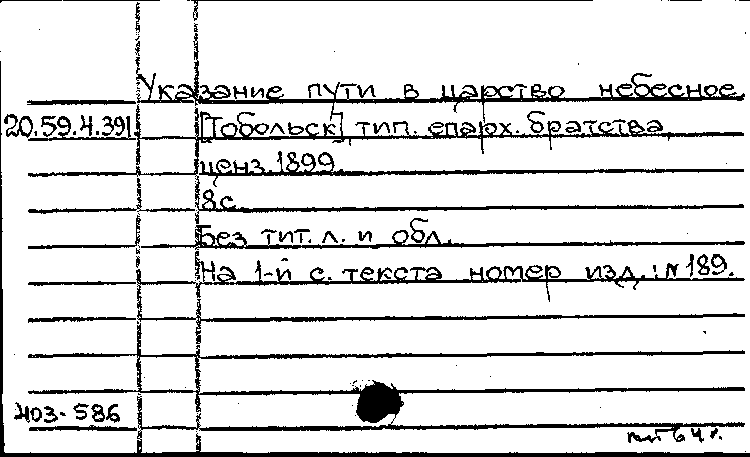 Указание пути в царство небесное.
20.59.4.391. [Тобольск], тип. епарх. братства,
ценз. 1899.
8 с.
Без тит. л. и обл.
На 1-й с. текста номер изд.: N 189.
403-586